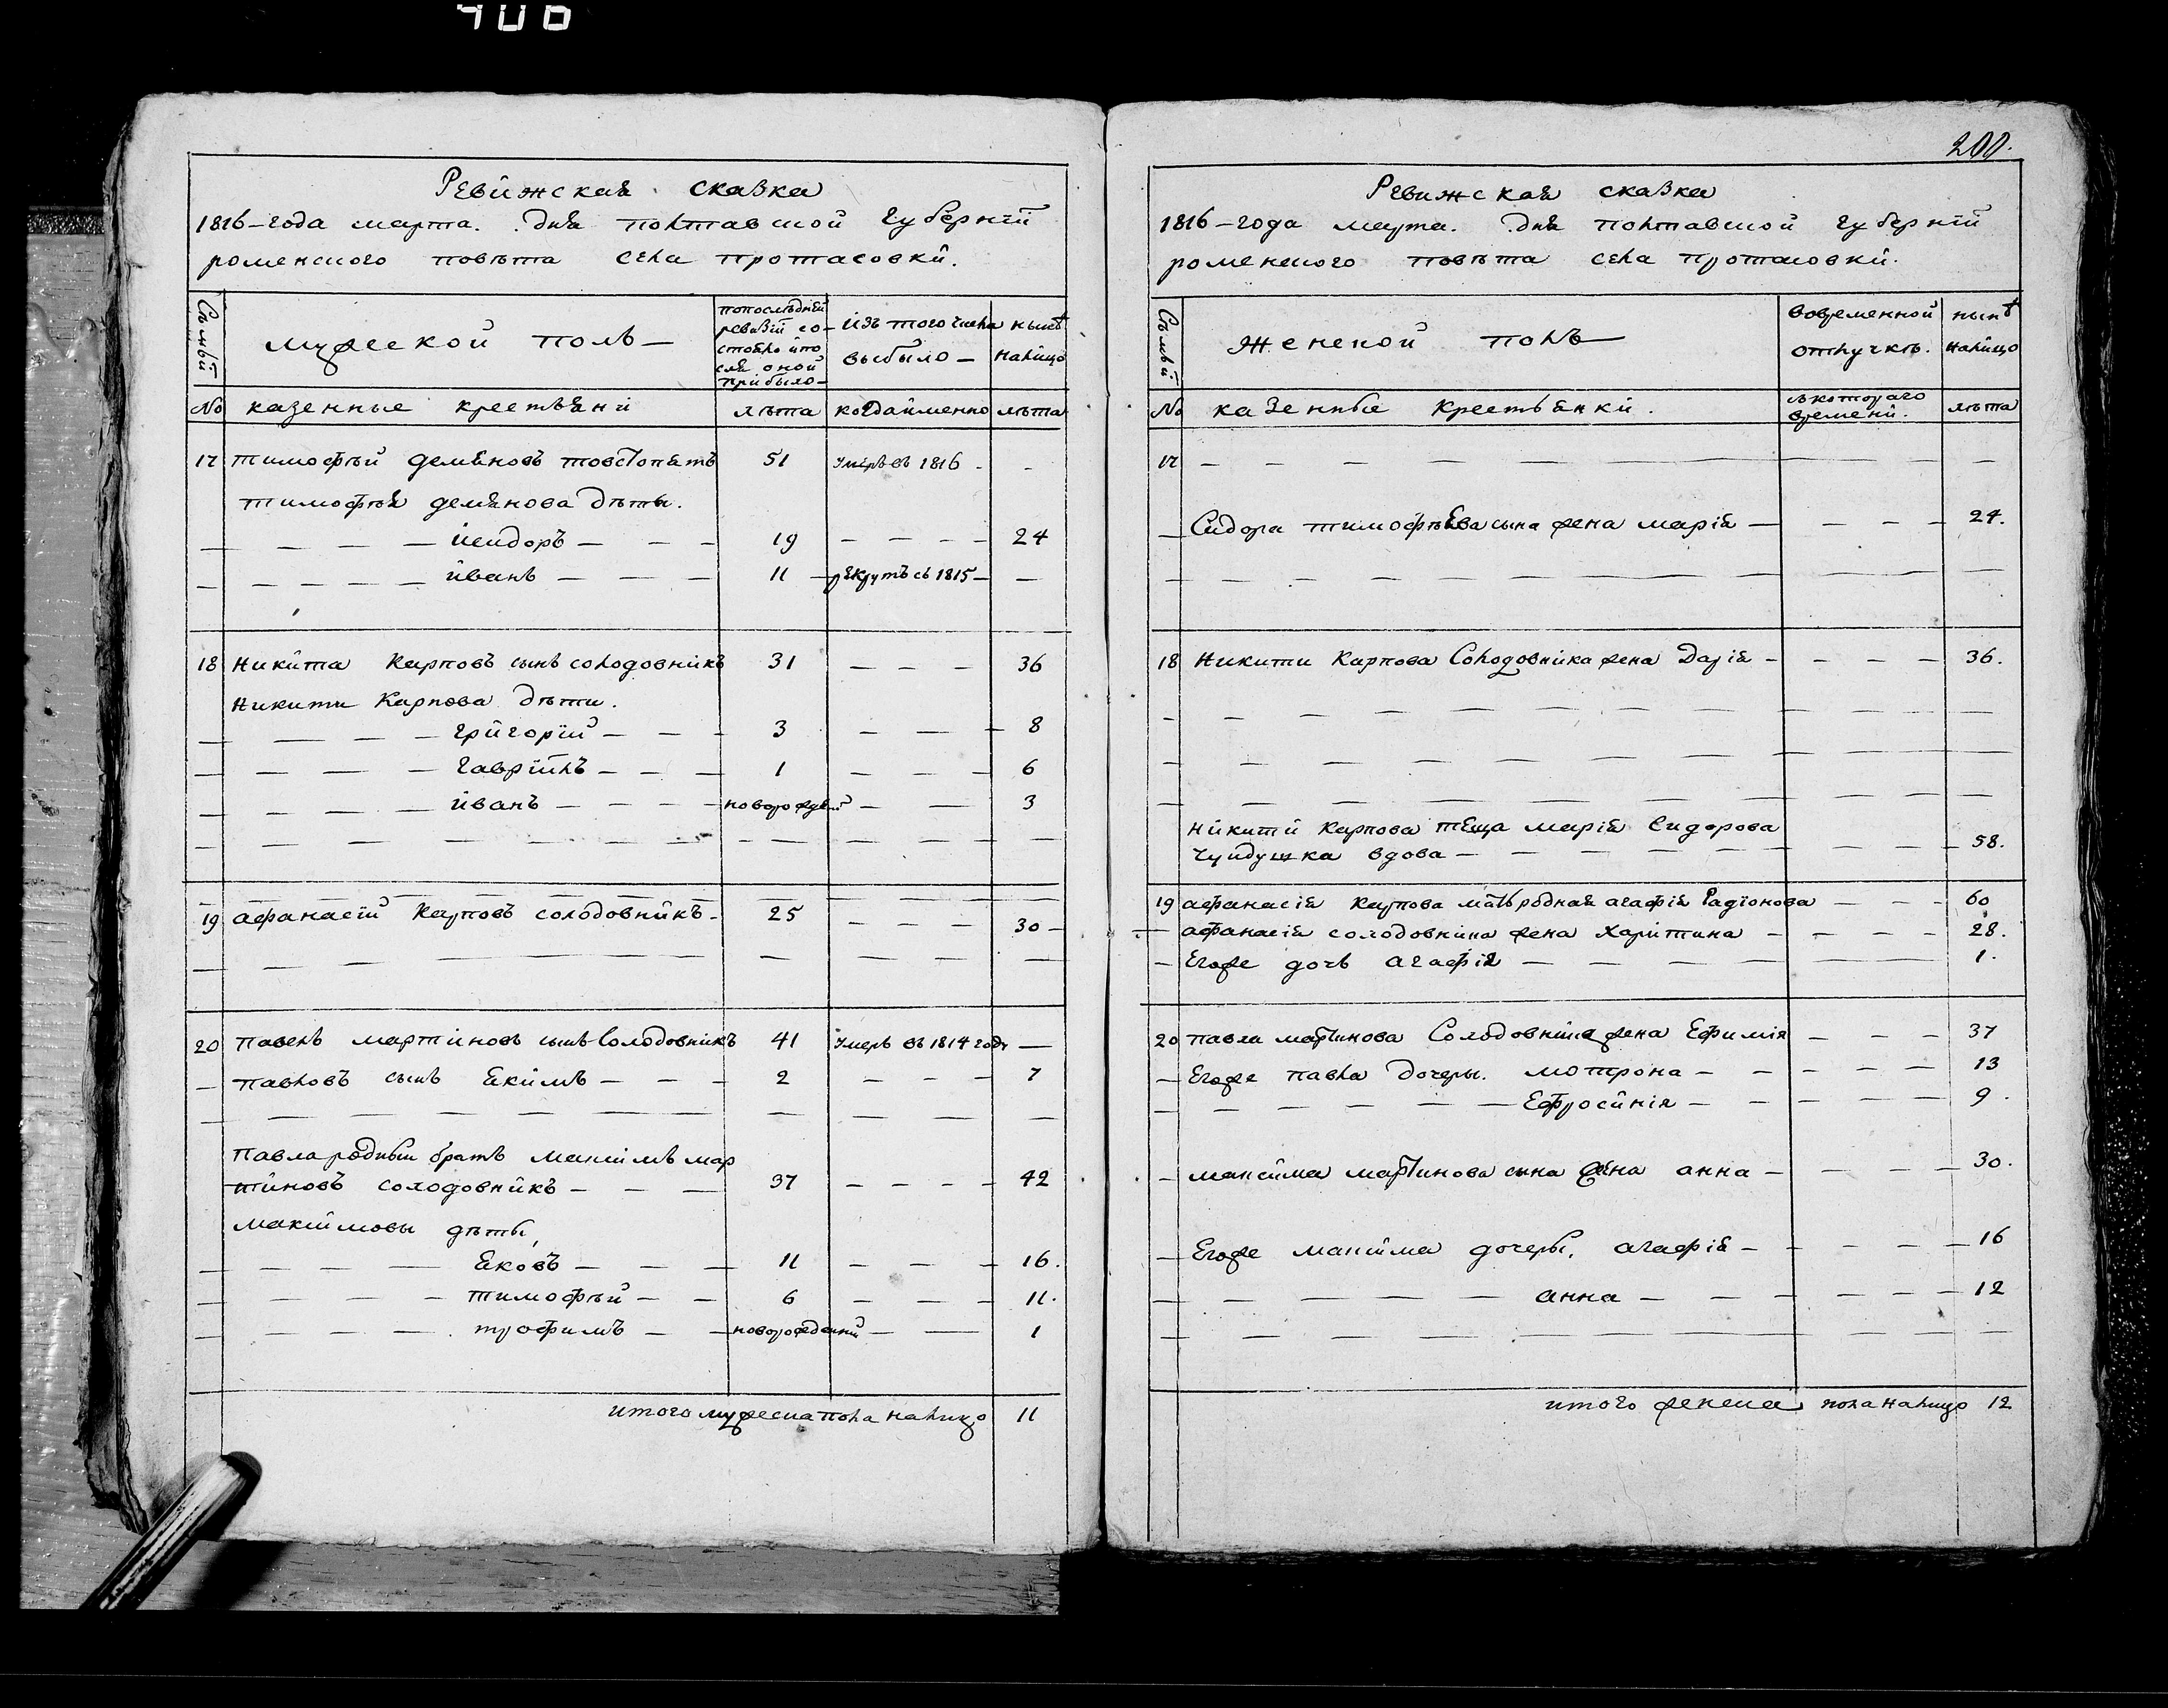 406
Ревижская сказка
1816-года марта. Дня полтавской губернїй
роменского повѣта села протасовки.
Сѣмьй
мужеской полъ —
попослѣдней ревизїй состояло ипосля оной прибыло —
изъ того числа выбыло —
нынѣ налицо
№ казенные крестьяни лѣта когдаименно лѣта
17 тимофѣй демяновъ товстопятъ 51 умеръ въ 1816 - -
тимофѣя демянова дѣты.
— — — — исидоръ — — — 19 — — — — 24
— — — — — иванъ — — — 11 — рекрутъ съ 1815 — —
18 никита карповъ сынъ солодовникъ 31 — — — 36
никити карпова дѣти.
— — — — григорїй — — — 3 — — — 8
— — — — гаврїилъ — — — 1 — — — 6
— — — — иванъ — — — — новорожденй — — 3
19 афанасїй карповъ солодовникъ - 25 — — — 30 —
20 павелъ мартиновъ сынъ Солодовникъ 41 умеръ въ 1814 году —
— павловъ сынъ якимъ — — — 2 — — — 7
павла родный братъ максимъ мар
тиновъ солодовникъ — — — 37 — — — — 42
максимовы дѣты,
— — — — яковъ — — — 11 — — — 16.
— — — — тимофѣй — — 6 — — — 11.
— — — — трофимъ — — новорожденнй — — 1
итого мужеска пола налицо 11
200.
Ревижская сказка
1816-года марта. Дня полтавской губернїй
роменского повѣта села протасовки.
Сѣмьй
Женской полъ
вовременной отлучкѣ.
нынѣ налицо
№ казенные крестьянки. съкотораго времени. лѣта
17 — — — — — — — — —
— Сидора тимофѣева сына жена марїя — — — — 24.
— — — — — — — — —
18 никити карпова Солодовника жена Дарїя — — — — 36.
никити карпова теща марїя Сидорова
вдова — — — — — — — — — 58.
19 афанасїя карпова мать родная агафїя Радїонова — — — 60
— афанасїя солодовника жена харитина — — — — 28.
— Егоже дочь агафїя — — — — — — 1.
20 павла мартинова Солодовника жена Ефимїя — — — 37
— Егоже павла дочеры. мотрона — — — — — 13
— — — — — — Ефросинїя — — — — — 9.
— максима мартинова сына жена анна — — — — 30.
— Егоже максима дочеры, агафїя — — — — — 16
— — — — — — анна — — — — — — 12
итого женска пола налицо 12